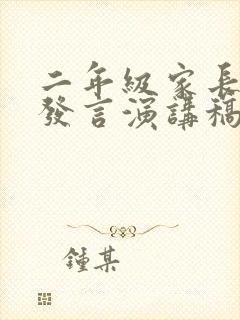 二年級家長
發言演講稿
鍾某